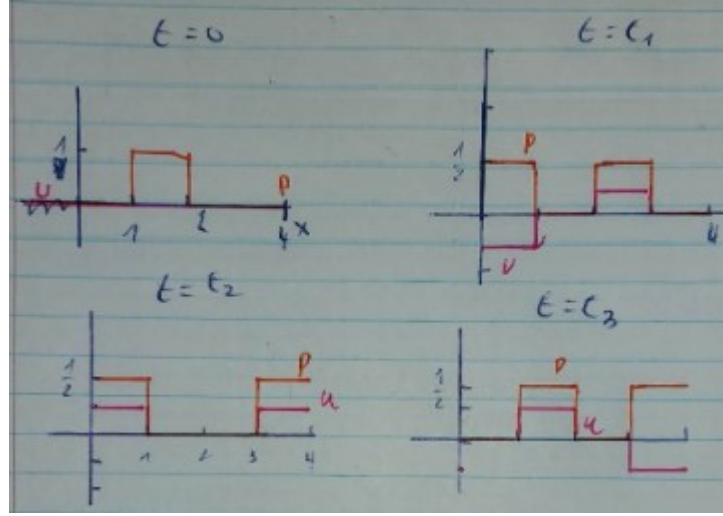 t = 0
1
u
P
1 2 4 x
t = t₁
1/2
P
u
4
t = t₂
1/2
P
u
1 2 3 4
t = t₃
1/2
P
u